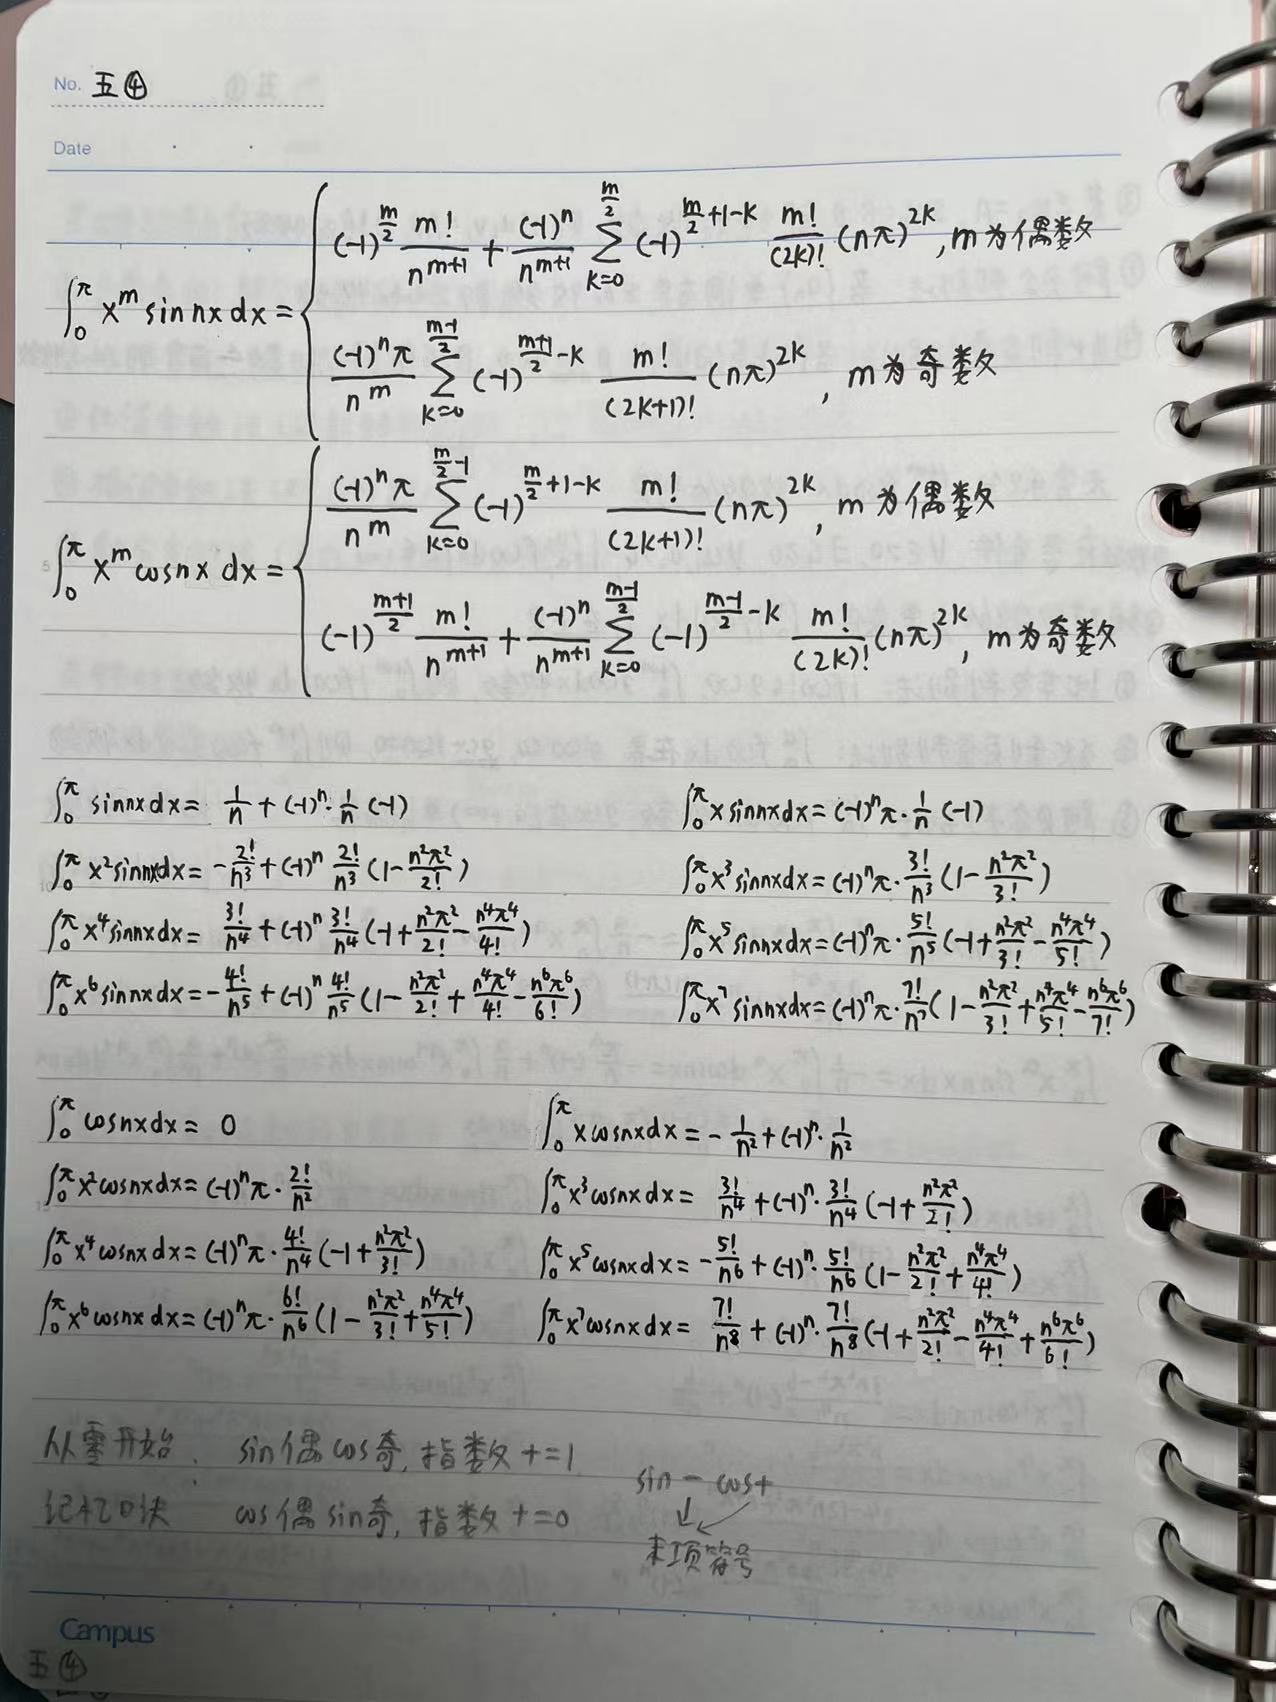 No. 五④
Date
∫₀^π x^m sin nx dx = { (-1)^{m/2} m!/n^{m+1} + (-1)^n/n^{m+1} ∑_{k=0}^{m/2} (-1)^{m/2+1-k} m!/(2k)! (nπ)^{2k}, m为偶数
(-1)^n π/n^m ∑_{k=0}^{(m-1)/2} (-1)^{(m+1)/2-k} m!/(2k+1)! (nπ)^{2k}, m为奇数
∫₀^π x^m cosnx dx = { (-1)^n π/n^m ∑_{k=0}^{m/2-1} (-1)^{m/2+1-k} m!/(2k+1)! (nπ)^{2k}, m为偶数
(-1)^{(m+1)/2} m!/n^{m+1} + (-1)^n/n^{m+1} ∑_{k=0}^{(m-1)/2} (-1)^{(m-1)/2-k} m!/(2k)! (nπ)^{2k}, m为奇数
∫₀^π sinnx dx = 1/n + (-1)^n · 1/n (-1)　∫₀^π x sinnx dx = (-1)^n π · 1/n (-1)
∫₀^π x² sinnx dx = -2!/n³ + (-1)^n 2!/n³ (1 - n²π²/2!)　∫₀^π x³ sinnx dx = (-1)^n π · 3!/n³ (1 - n²π²/3!)
∫₀^π x⁴ sinnx dx = 3!/n⁴ + (-1)^n 3!/n⁴ (-1 + n²π²/2! - n⁴π⁴/4!)　∫₀^π x⁵ sinnx dx = (-1)^n π · 5!/n⁵ (-1 + n²π²/3! - n⁴π⁴/5!)
∫₀^π x⁶ sinnx dx = -4!/n⁵ + (-1)^n 4!/n⁵ (1 - n²π²/2! + n⁴π⁴/4! - n⁶π⁶/6!)　∫₀^π x⁷ sinnx dx = (-1)^n π · 7!/n⁷ (1 - n²π²/3! + n⁴π⁴/5! - n⁶π⁶/7!)
∫₀^π cosnx dx = 0　∫₀^π x cosnx dx = -1/n² + (-1)^n · 1/n²
∫₀^π x² cosnx dx = (-1)^n π · 2!/n²　∫₀^π x³ cosnx dx = 3!/n⁴ + (-1)^n · 3!/n⁴ (-1 + n²π²/2!)
∫₀^π x⁴ cosnx dx = (-1)^n π · 4!/n⁴ (-1 + n²π²/3!)　∫₀^π x⁵ cosnx dx = -5!/n⁶ + (-1)^n · 5!/n⁶ (1 - n²π²/2! + n⁴π⁴/4!)
∫₀^π x⁶ cosnx dx = (-1)^n π · 6!/n⁶ (1 - n²π²/3! + n⁴π⁴/5!)　∫₀^π x⁷ cosnx dx = 7!/n⁸ + (-1)^n · 7!/n⁸ (-1 + n²π²/2! - n⁴π⁴/4! + n⁶π⁶/6!)
从零开始. sin偶cos奇, 指数 +=1
sin - cos+
记忆口诀 cos偶sin奇, 指数 +=0
末项符号
Campus
五④